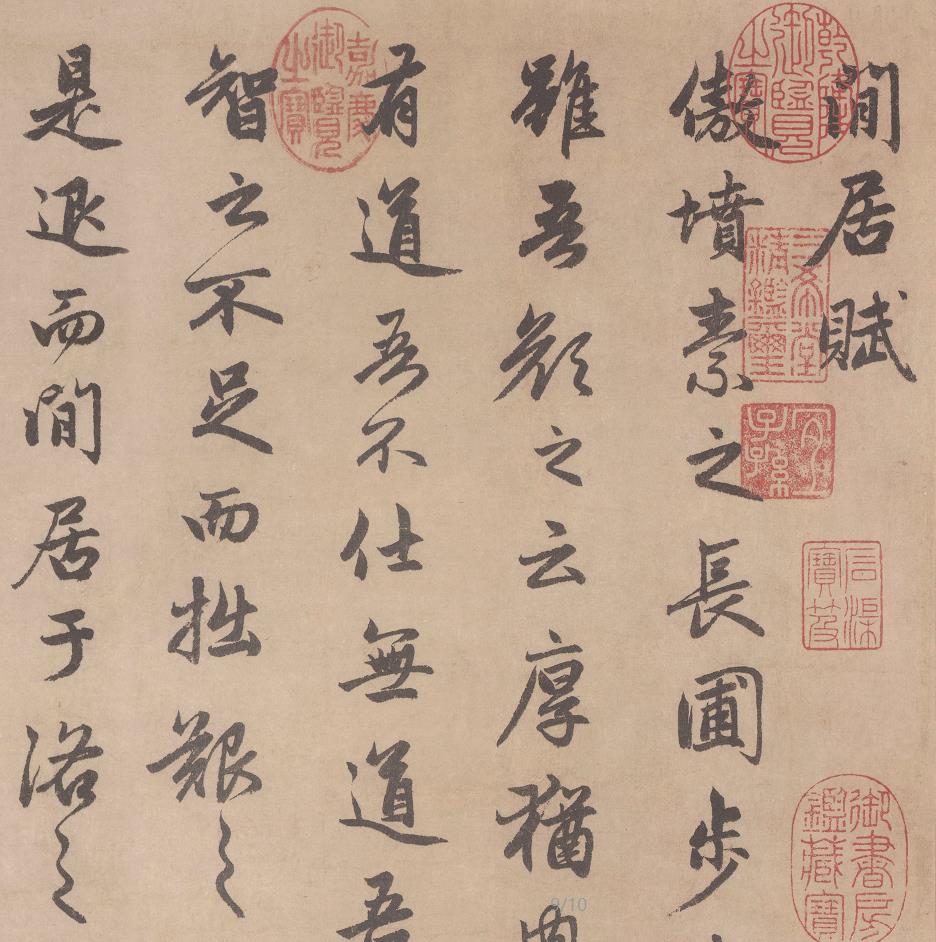 閒居賦
傲墳素之長圃步
雖吾顔之云厚猶内
有道吾不仕無道吾
智之不足而拙艱之
是退而閒居于洛之
乾隆御覽之寶
嘉慶御覽之寶
三希堂精鑑璽
宜子孫
石渠寶笈
御書房鑑藏寶
9/10